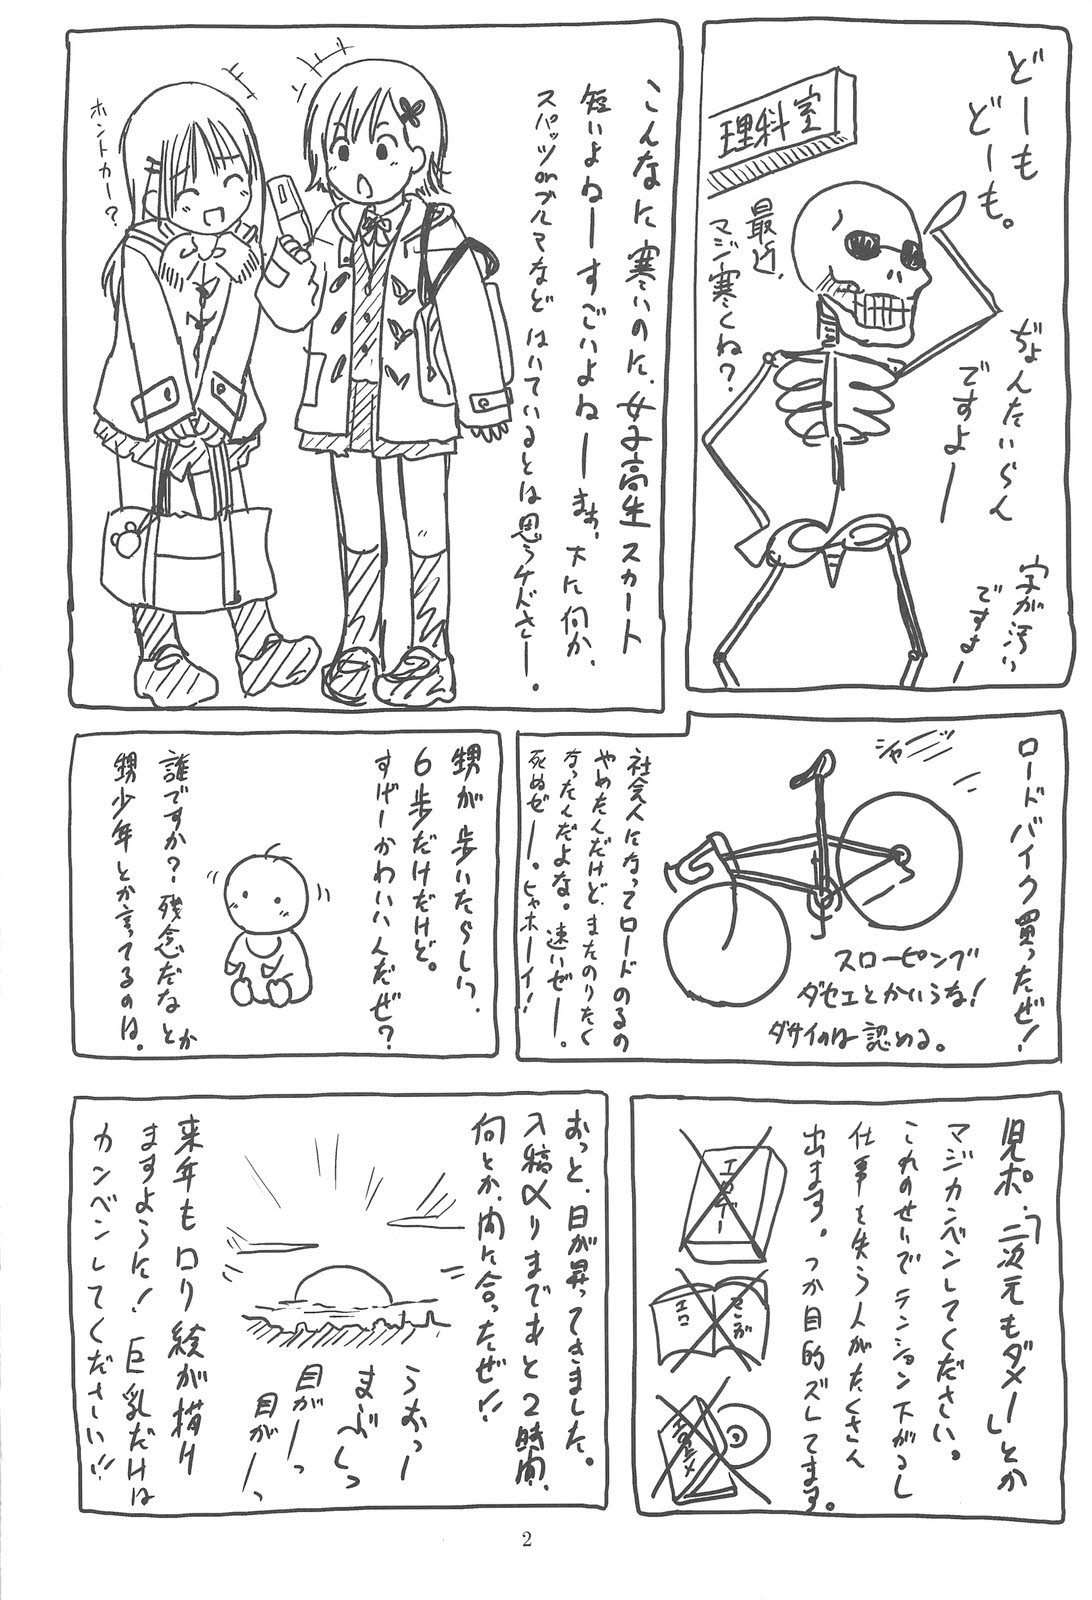 どーも
どーも。
理科室
最近、
マジ寒くね？
ぢょんたいらん
ですよー
字が汚い
ですよー
こんなに寒いのに、女子高生スカート
短いよねーすごいよねーまぁ、下に何か、
スパッツorブルマなどはいているとは思うケドさー。
ホントカー？
ロードバイク買ったぜ！
シャジーン
スローピング
ダセェとかいうな！
ダサイのは認める。
社会人になってロードのるの
やめたんだけど、またのりたく
なったんだよな。速いぜー。
死ぬぜー。ヒャホーイ！
甥が歩いたらしい。
6歩だけだけど。
すげーかわいいんだぜ？
誰ですか？残念だなとか
甥少年とか言ってるのは。
児ポ、「二次元もダメー」とか
マジカンベンしてください。
これのせいでテンション下がるし
仕事を失う人がたくさん
出ます。つか目的ズレてます。
エロゲー
エロ
まんが
エロアニメ
おっと、日が昇ってきました。
入稿〆りまであと2時間、
何とか、間に合ったぜ!!
うおっー
まぶしっ
目がーっ
目がーっ
来年もロリ絵が描け
ますように！巨乳だけは
カンベンしてください!!
2